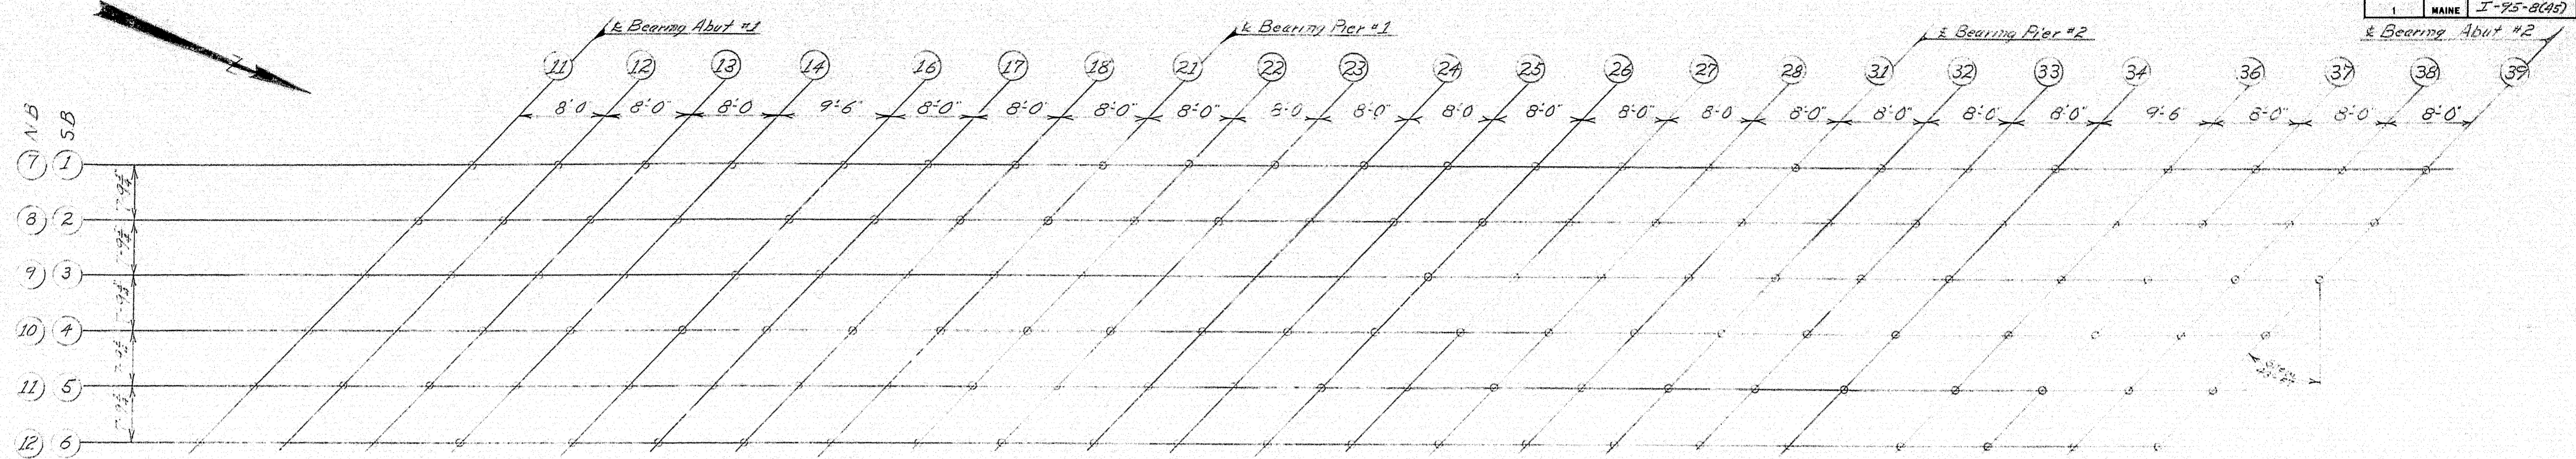 1 MAINE I-95-8(45)
℄ Bearing Abut #1
℄ Bearing Pier #1
℄ Bearing Pier #2
℄ Bearing Abut #2
11 12 13 14 16 17 18 21 22 23 24 25 26 27 28 31 32 33 34 36 37 38 39
8'-0" 8'-0" 8'-0 9'-6" 8'-0" 8'-0" 8'-0" 8'-0" 8'-0 8'-0" 8'-0 8'-0" 8'-0" 8'-0 8'-0" 8'-0" 8'-0" 8'-0" 9'-6 8'-0" 8'-0" 8'-0"
NB SB
7 1
8 2
9 3
10 4
11 5
12 6